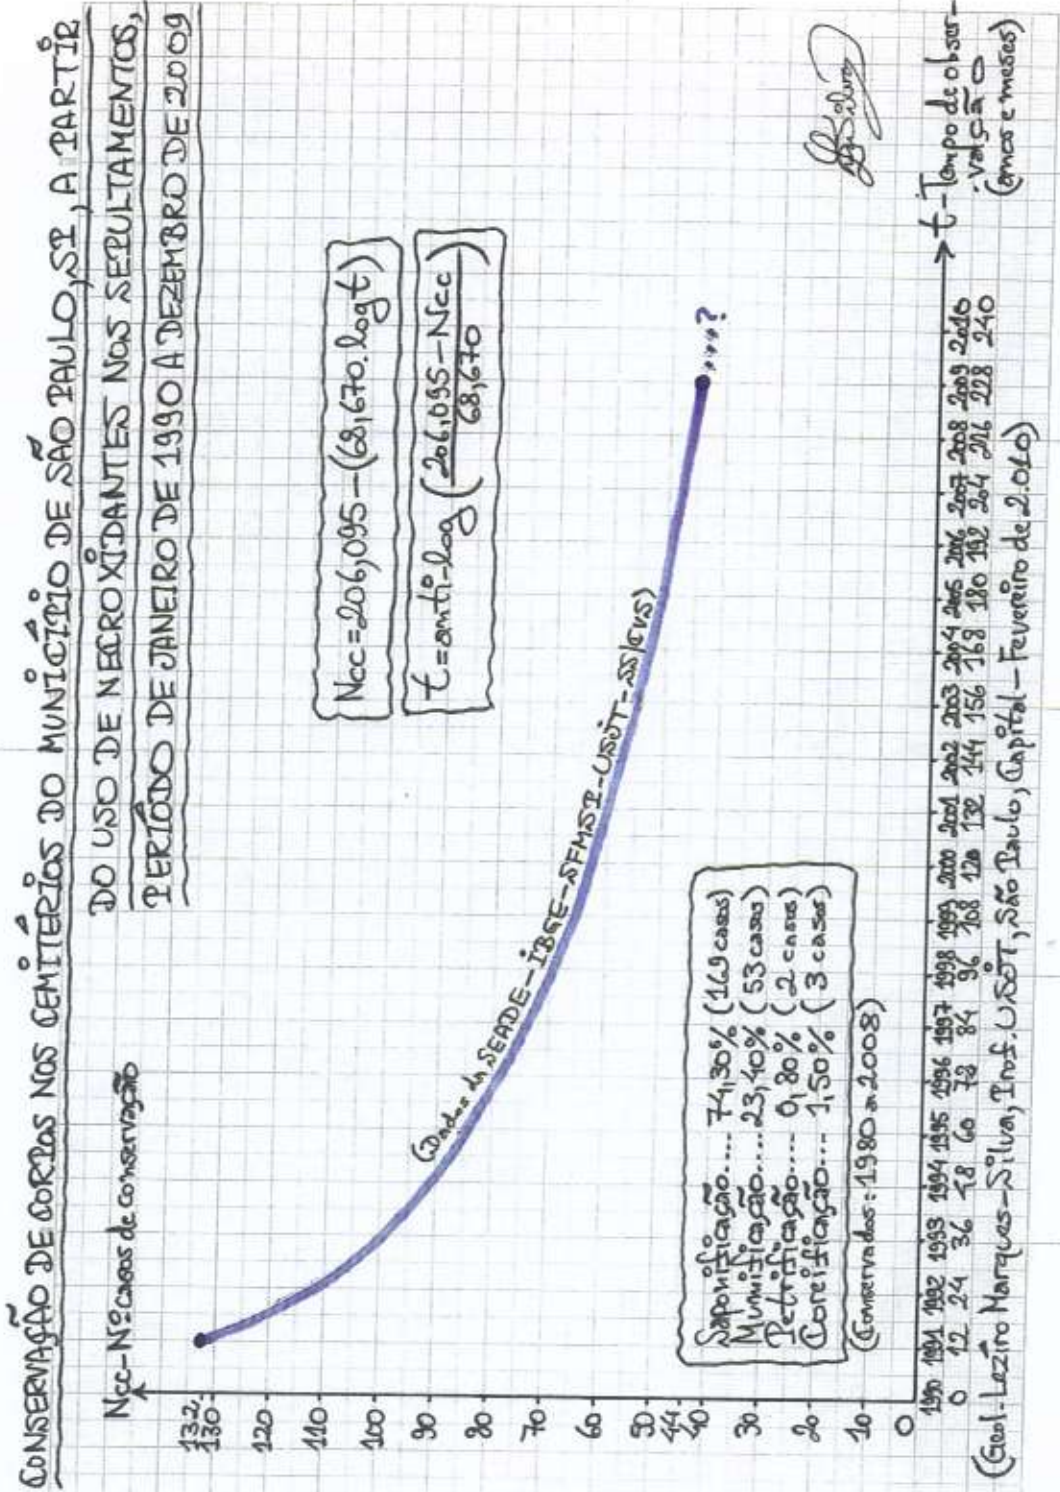 CONSERVAÇÃO DE CORPOS NOS CEMITÉRIOS DO MUNICÍPIO DE SÃO PAULO, SP, A PARTIR
DO USO DE NECROXIDANTES NOS SEPULTAMENTOS,
PERÍODO DE JANEIRO DE 1990 A DEZEMBRO DE 2009
Ncc-Nº casos de conservação
132
130
120
110
100
90
80
70
60
50
44
40
30
20
10
0
Ncc=206,095-(68,670.log t)
t=anti-log (206,095-Ncc
68,670)
(Dados da SEADE-IBGE-SFMSP-USJT-SS/CVS)
....?
Saponificação.... 74,30% (169 casos)
Mumificação.... 23,40% (53 casos)
Petrificação.... 0,80% (2 casos)
Coreificação... 1,50% (3 casos)
(Conservados: 1980 a 2008)
t-Tempo de obser-
vação
(anos e meses)
1990 1991 1992 1993 1994 1995 1996 1997 1998 1999 2000 2001 2002 2003 2004 2005 2006 2007 2008 2009 2010
0 12 24 36 48 60 72 84 96 108 120 132 144 156 168 180 192 204 216 228 240
(Geól. Lezíro Marques-Silva, Prof. USJT, São Paulo, Capital-Fevereiro de 2.010)